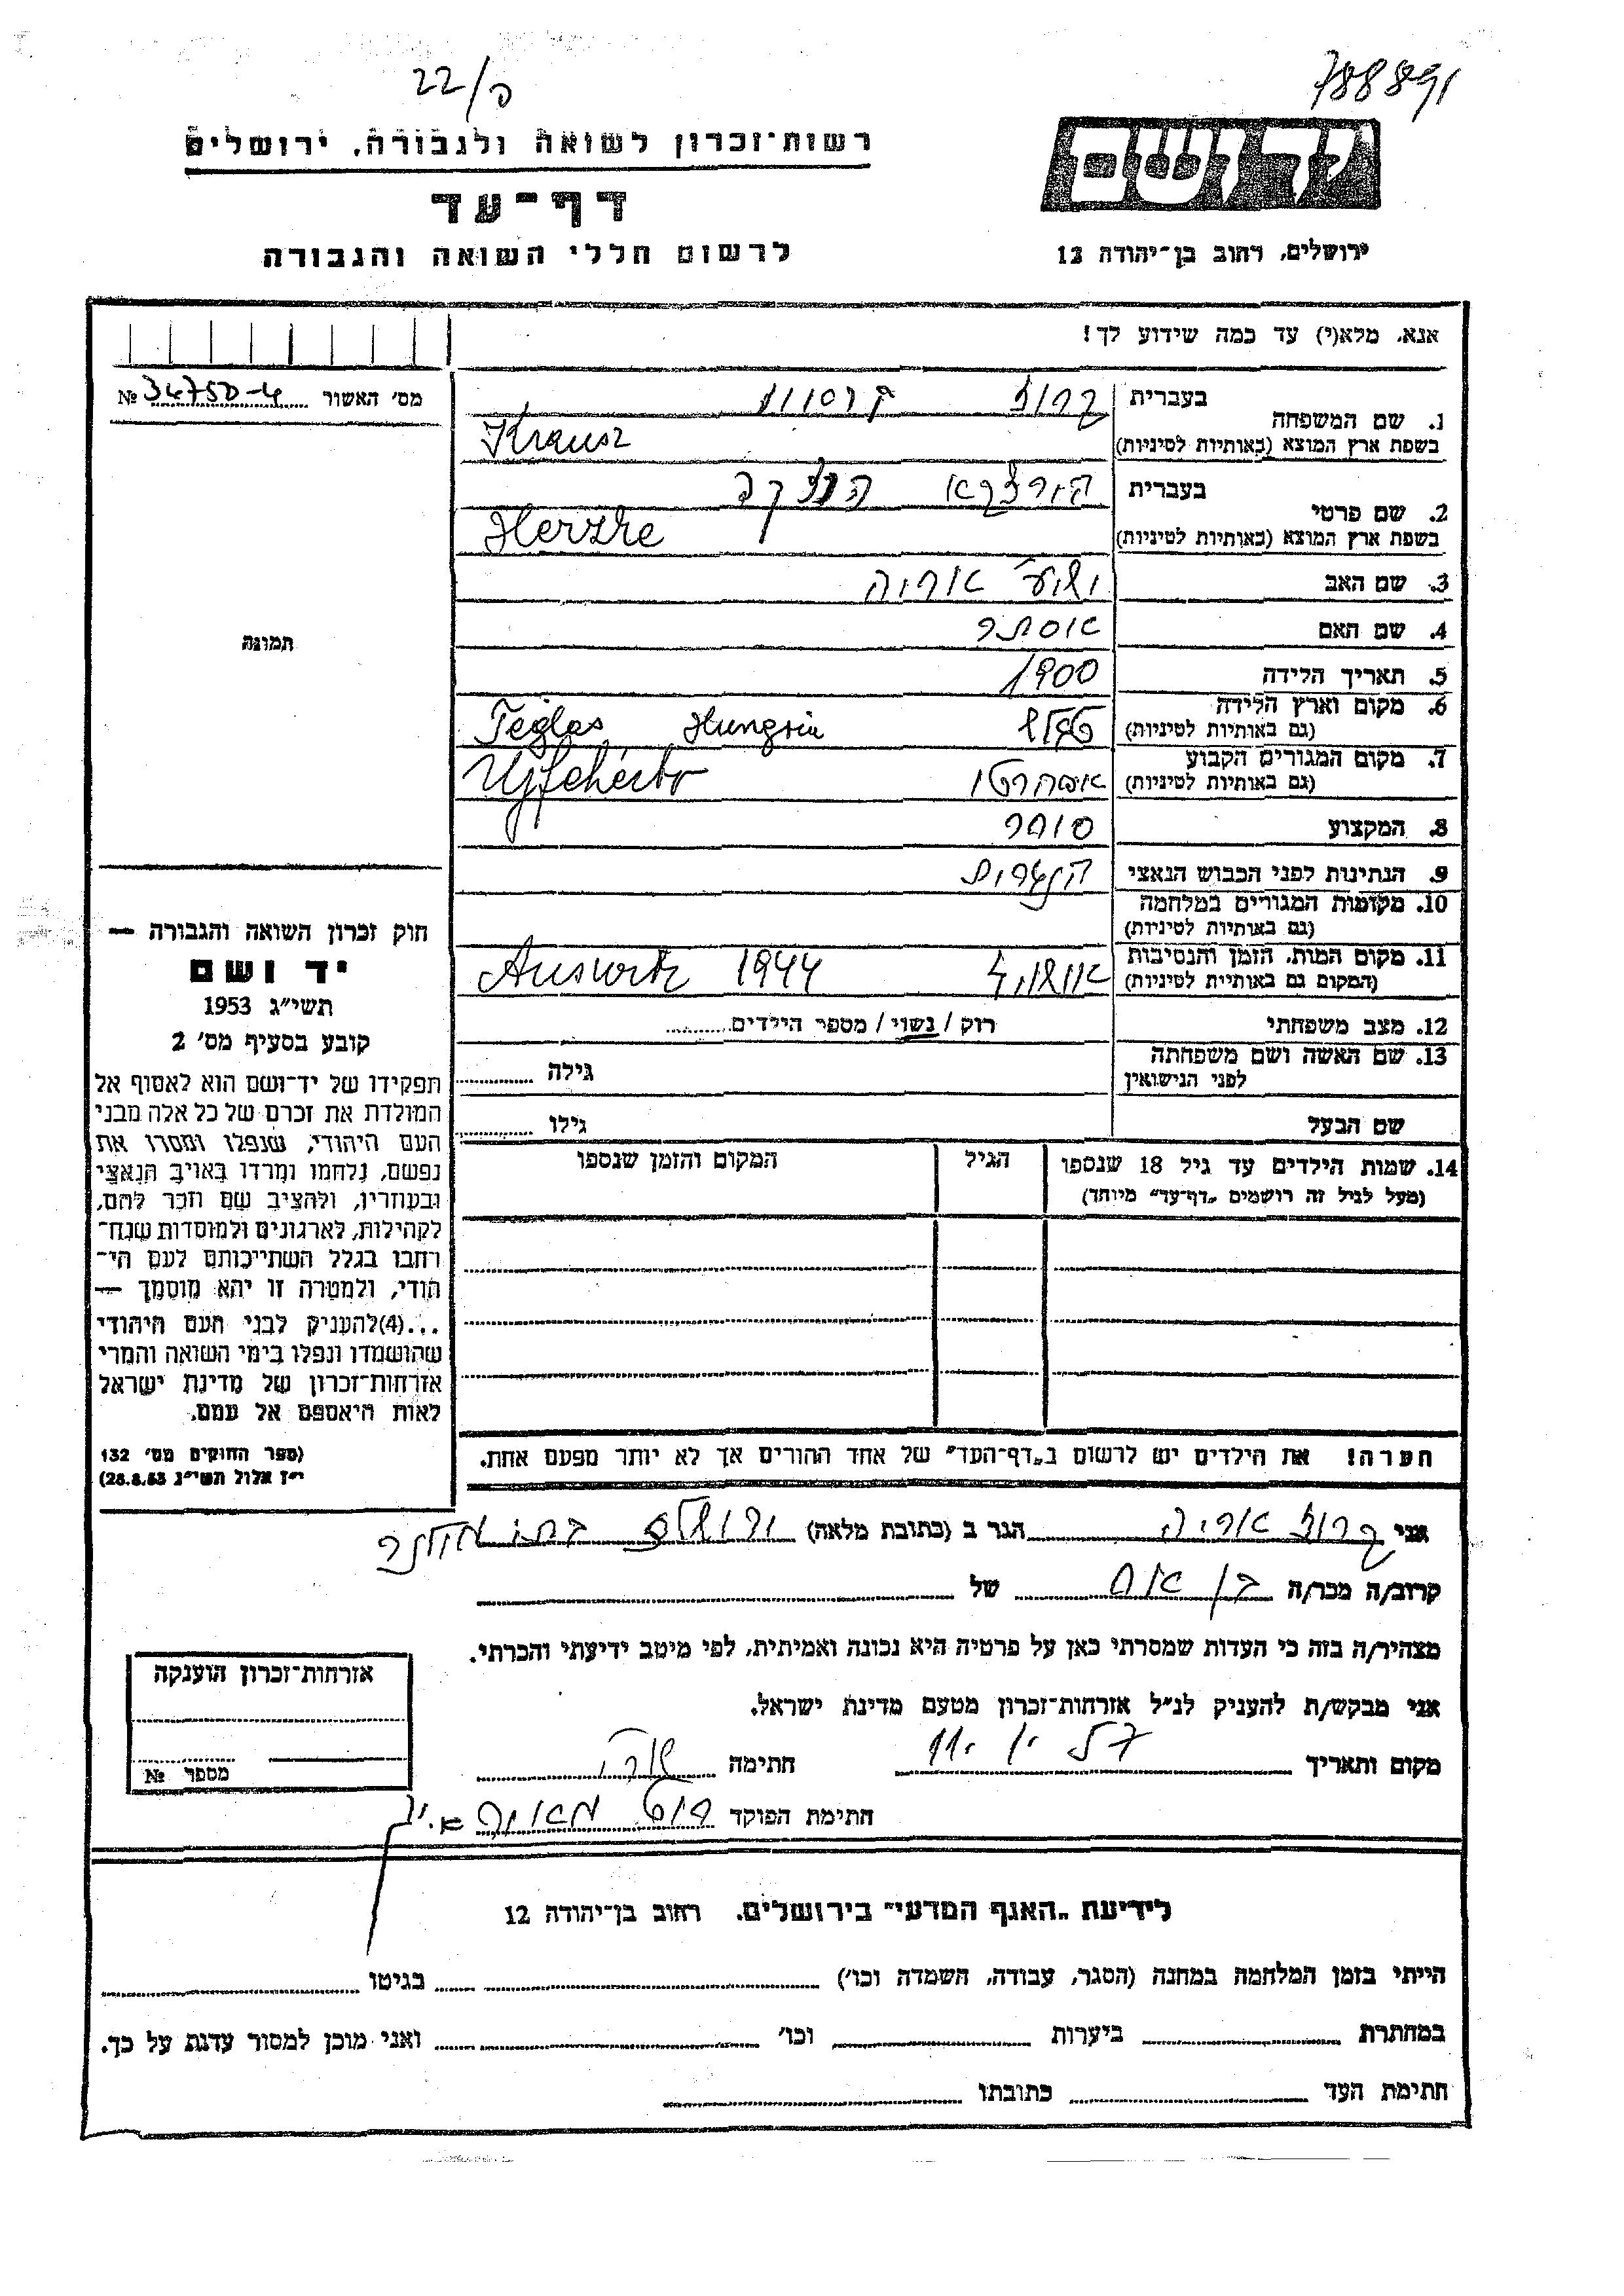 788891
22/פ
רשות־זכרון לשואה ולגבורה, ירושלים
דף־עד
לרשום חללי השואה והגבורה
ידושם
ירושלים, רחוב בן־יהודה 12
אנא, מלא(י) עד כמה שידוע לך!
מס׳ האשור № 34750-4
תמונה
1. שם המשפחה בעברית קרוז
בשפת ארץ המוצא (באותיות לטיניות) Krausz
2. שם פרטי בעברית
בשפת ארץ המוצא (באותיות לטיניות) Herzke
3. שם האב אריה
4. שם האם אסתר
5. תאריך הלידה 1900
6. מקום וארץ הלידה
(גם באותיות לטיניות) טגלש Hungria Téglas
7. מקום המגורים הקבוע
(גם באותיות לטיניות) Ujfehérto
8. המקצוע סוחר
9. הנתינות לפני הכבוש הנאצי הונגרית
10. מקומות המגורים במלחמה
(גם באותיות לטיניות)
11. מקום המות, הזמן והנסיבות
(המקום גם באותיות לטיניות) אושויץ 1944 Auswitz
12. מצב משפחתי רוק / נשוי / מספר הילדים
13. שם האשה ושם משפחתה
לפני הנישואין גילה
שם הבעל גילו
14. שמות הילדים עד גיל 18 שנספו הגיל המקום והזמן שנספו
(מעל לגיל זה רושמים „דף־עד״ מיוחד)
הערה! את הילדים יש לרשום ב„דף־העד״ של אחד ההורים אך לא יותר מפעם אחת.
חוק זכרון השואה והגבורה —
יד ושם
תשי״ג 1953
קובע בסעיף מס׳ 2
תפקידו של יד־ושם הוא לאסוף אל
המולדת את זכרם של כל אלה מבני
העם היהודי, שנפלו ומסרו את
נפשם, נלחמו ומרדו באויב הנאצי
ובעוזריו, ולהציב שם וזכר להם,
לקהילות, לארגונים ולמוסדות שנח־
רחבו בגלל השתייכותם לעם הי־
הודי, ולמטרה זו יהא מוסמך —
...(4)להעניק לבני העם היהודי
שהושמדו ונפלו בימי השואה והמרי
אזרחות־זכרון של מדינת ישראל
לאות היאספם אל עמם.
(ספר החוקים מס׳ 132
י״ז אלול תשי״ג 28.8.53)
אני קרוז אריה הגר ב (כתובת מלאה) ירושלים
קרוב/ה מכר/ה בן אח של
מצהיר/ה בזה כי העדות שמסרתי כאן על פרטיה היא נכונה ואמיתית, לפי מיטב ידיעתי והכרתי.
אני מבקש/ת להעניק לנ״ל אזרחות־זכרון מטעם מדינת ישראל.
מקום ותאריך חתימה
חתימת הפוקד
אזרחות־זכרון הוענקה
מספר №
לידיעת „האגף המדעי״ בירושלים, רחוב בן־יהודה 12
הייתי בזמן המלחמה במחנה (הסגר, עבודה, השמדה וכו׳) בגיטו
במחתרת ביערות וכו׳ ואני מוכן למסור עדות על כך.
חתימת העד כתובתו